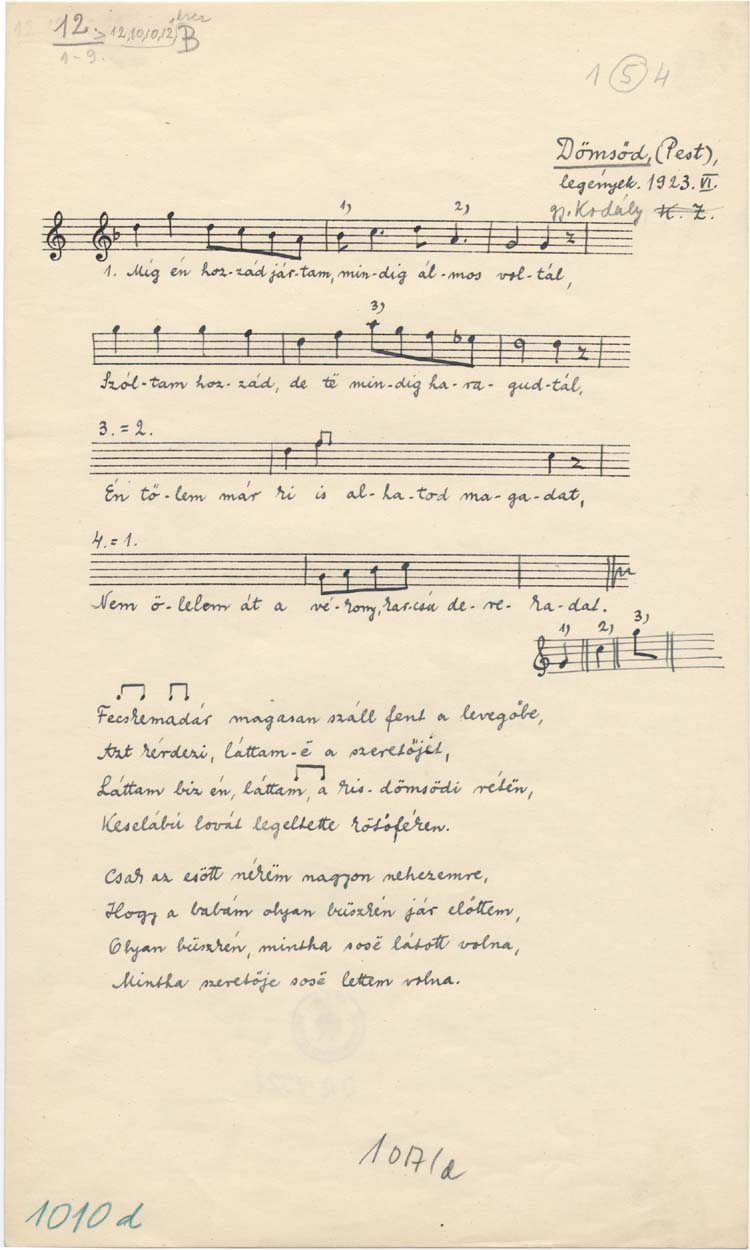 12. 12,10,10,12, B
1-9.
1 5 4
Dömsöd, (Pest),
legények. 1923. VI.
gy. Kodály K. Z.
1) 2)
1. Míg én hoz-zád jár-tam, min-dig ál-mos vol-tál,
3)
Szól-tam hoz-zád, de të min-dig ha-ra-gud-tál,
3. = 2.
Én tő-lem már ki is al-ha-tod ma-ga-dat,
4. = 1.
Nem ö-lelem át a vé-kony, kar-csú de-re-ka-dat.
1) 2) 3)
Fecskemadár magasan száll fent a levegőbe,
Azt kérdezi, láttam-ë a szeretőjét,
Láttam biz én, láttam, a kis-dömsödi rétën,
Keselábú lovát legeltette kötőféken.
Csak az esött nékëm nagyon nehezemre,
Hogy a babám olyan büszkén jár előttem,
Olyan büszkén, mintha sosë látott volna,
Mintha szeretője sosë lettem volna.
1017/d
1010 d